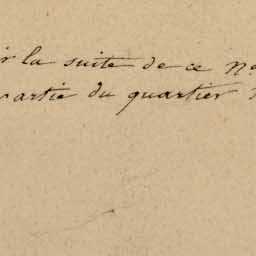 la suite de ce No
partie du quartier